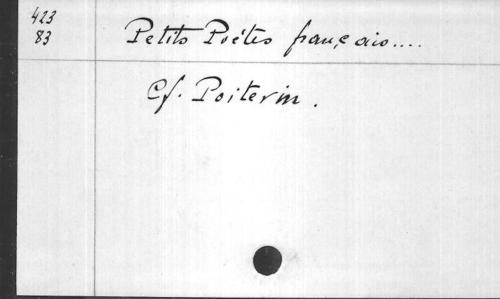 423
83
Petits Poétes français....
Cf. Poiterin.